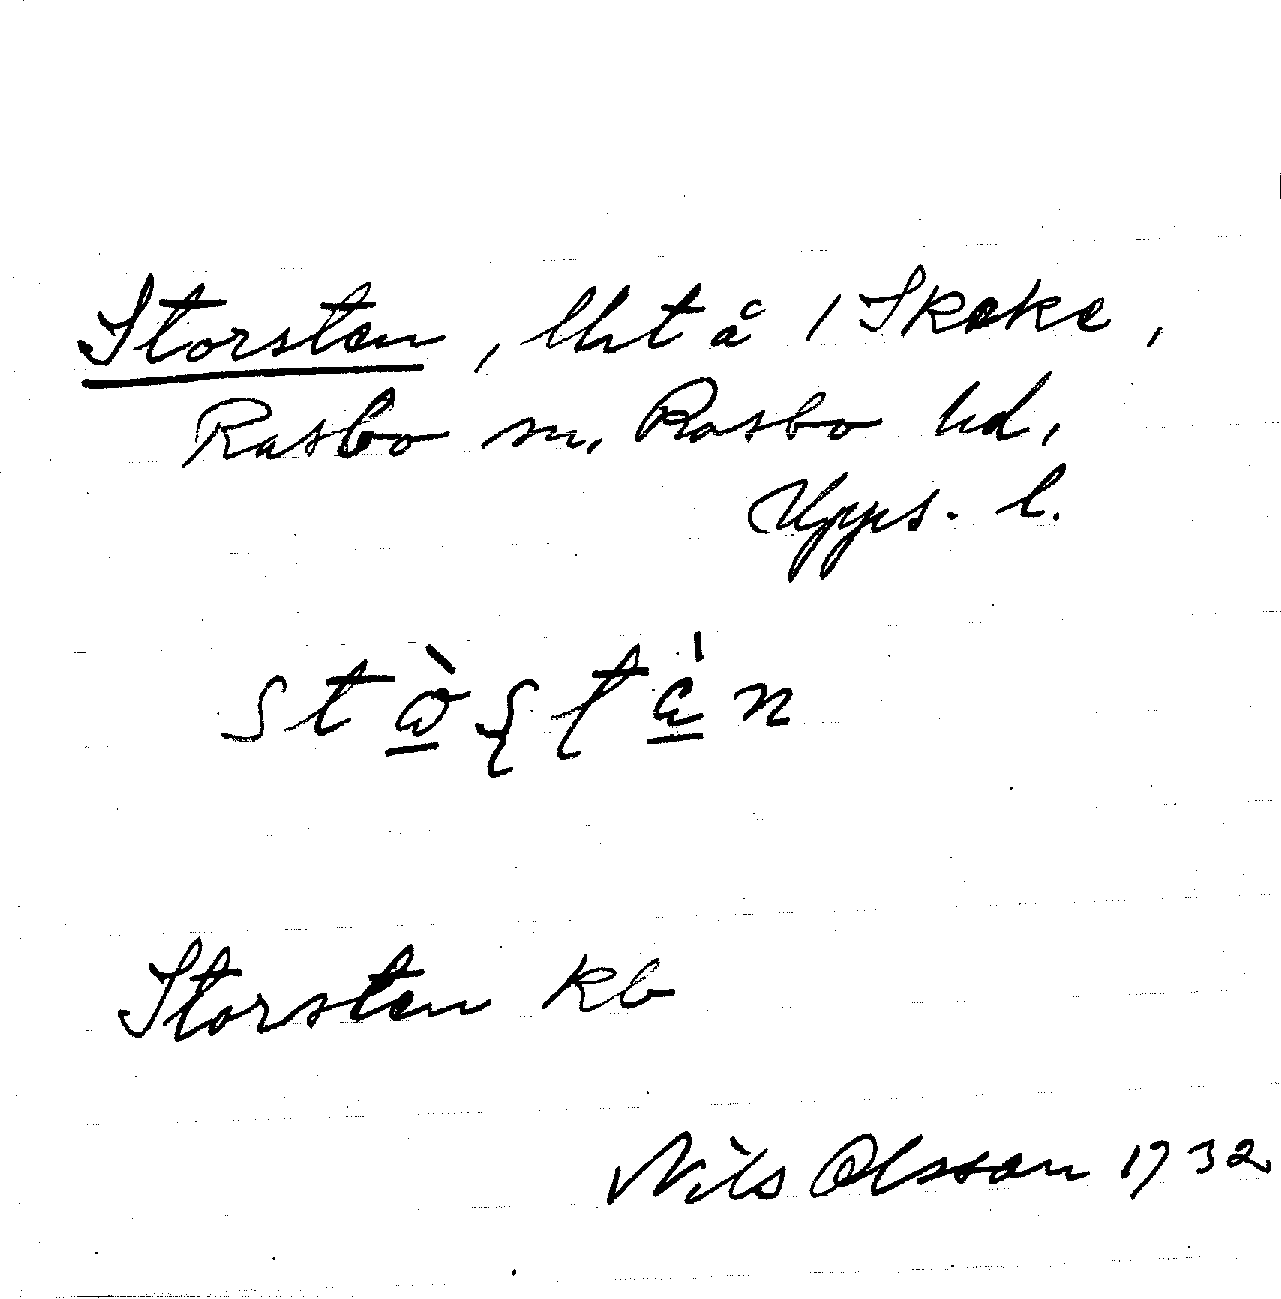 Storsten, lht å 1 Skeke,
Rasbo sn, Rasbo hd,
Upps. l.
Storsten kb
Nils Olsson 1932